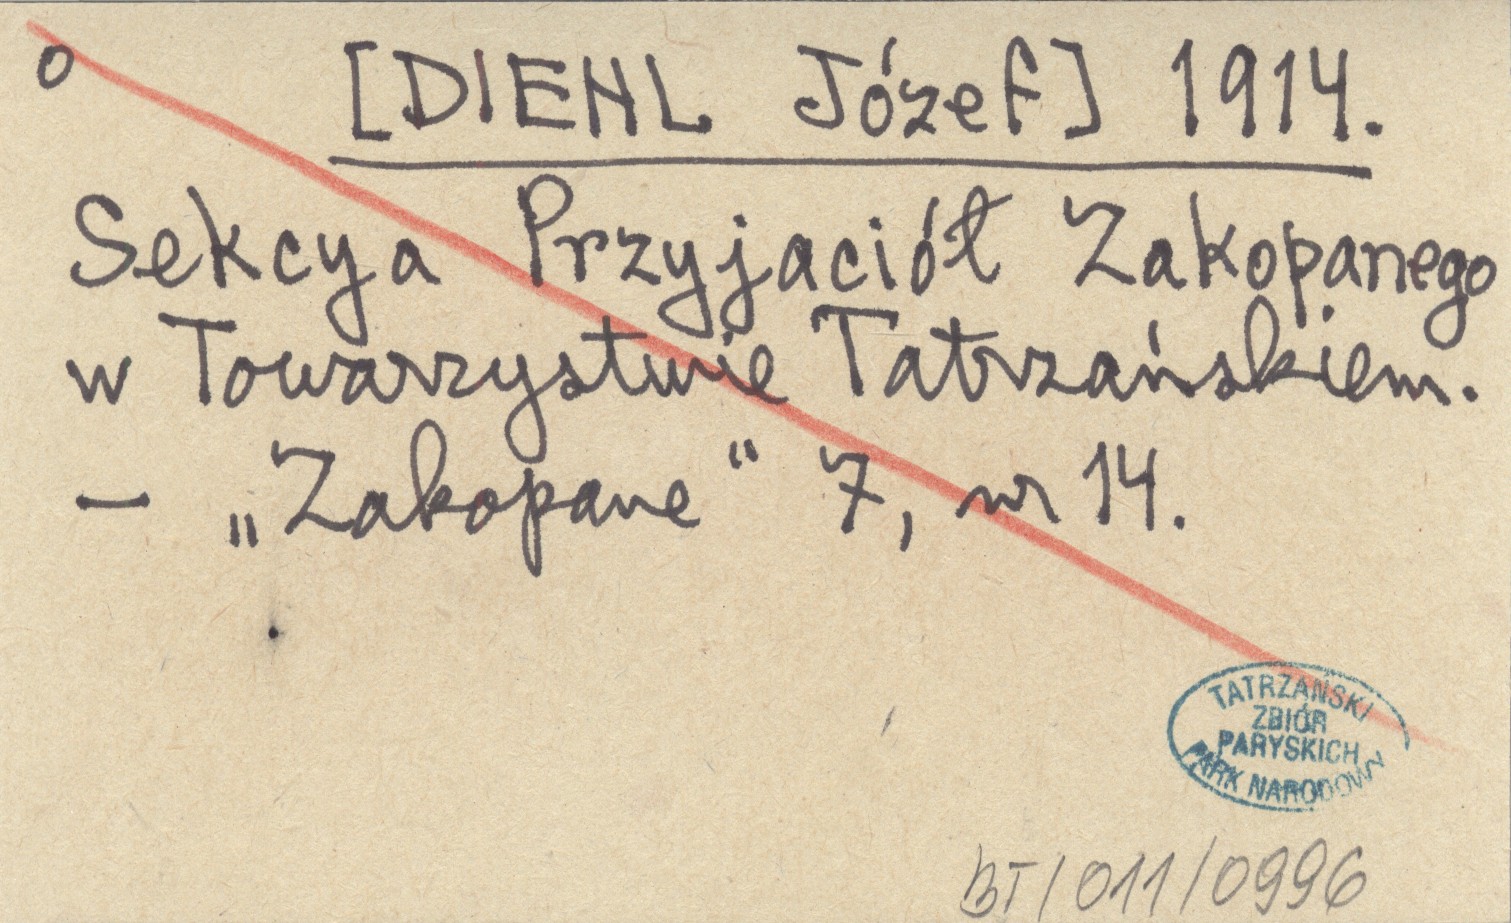 o [DIEHL Józef] 1914.
Sekcya Przyjaciół Zakopanego
w Towarzystwie Tatrzańskiem.
— „Zakopane“ 7, nr 14.
TATRZAŃSKI
ZBIÓR
PARYSKICH
PARK NARODOWY
BT/011/0996